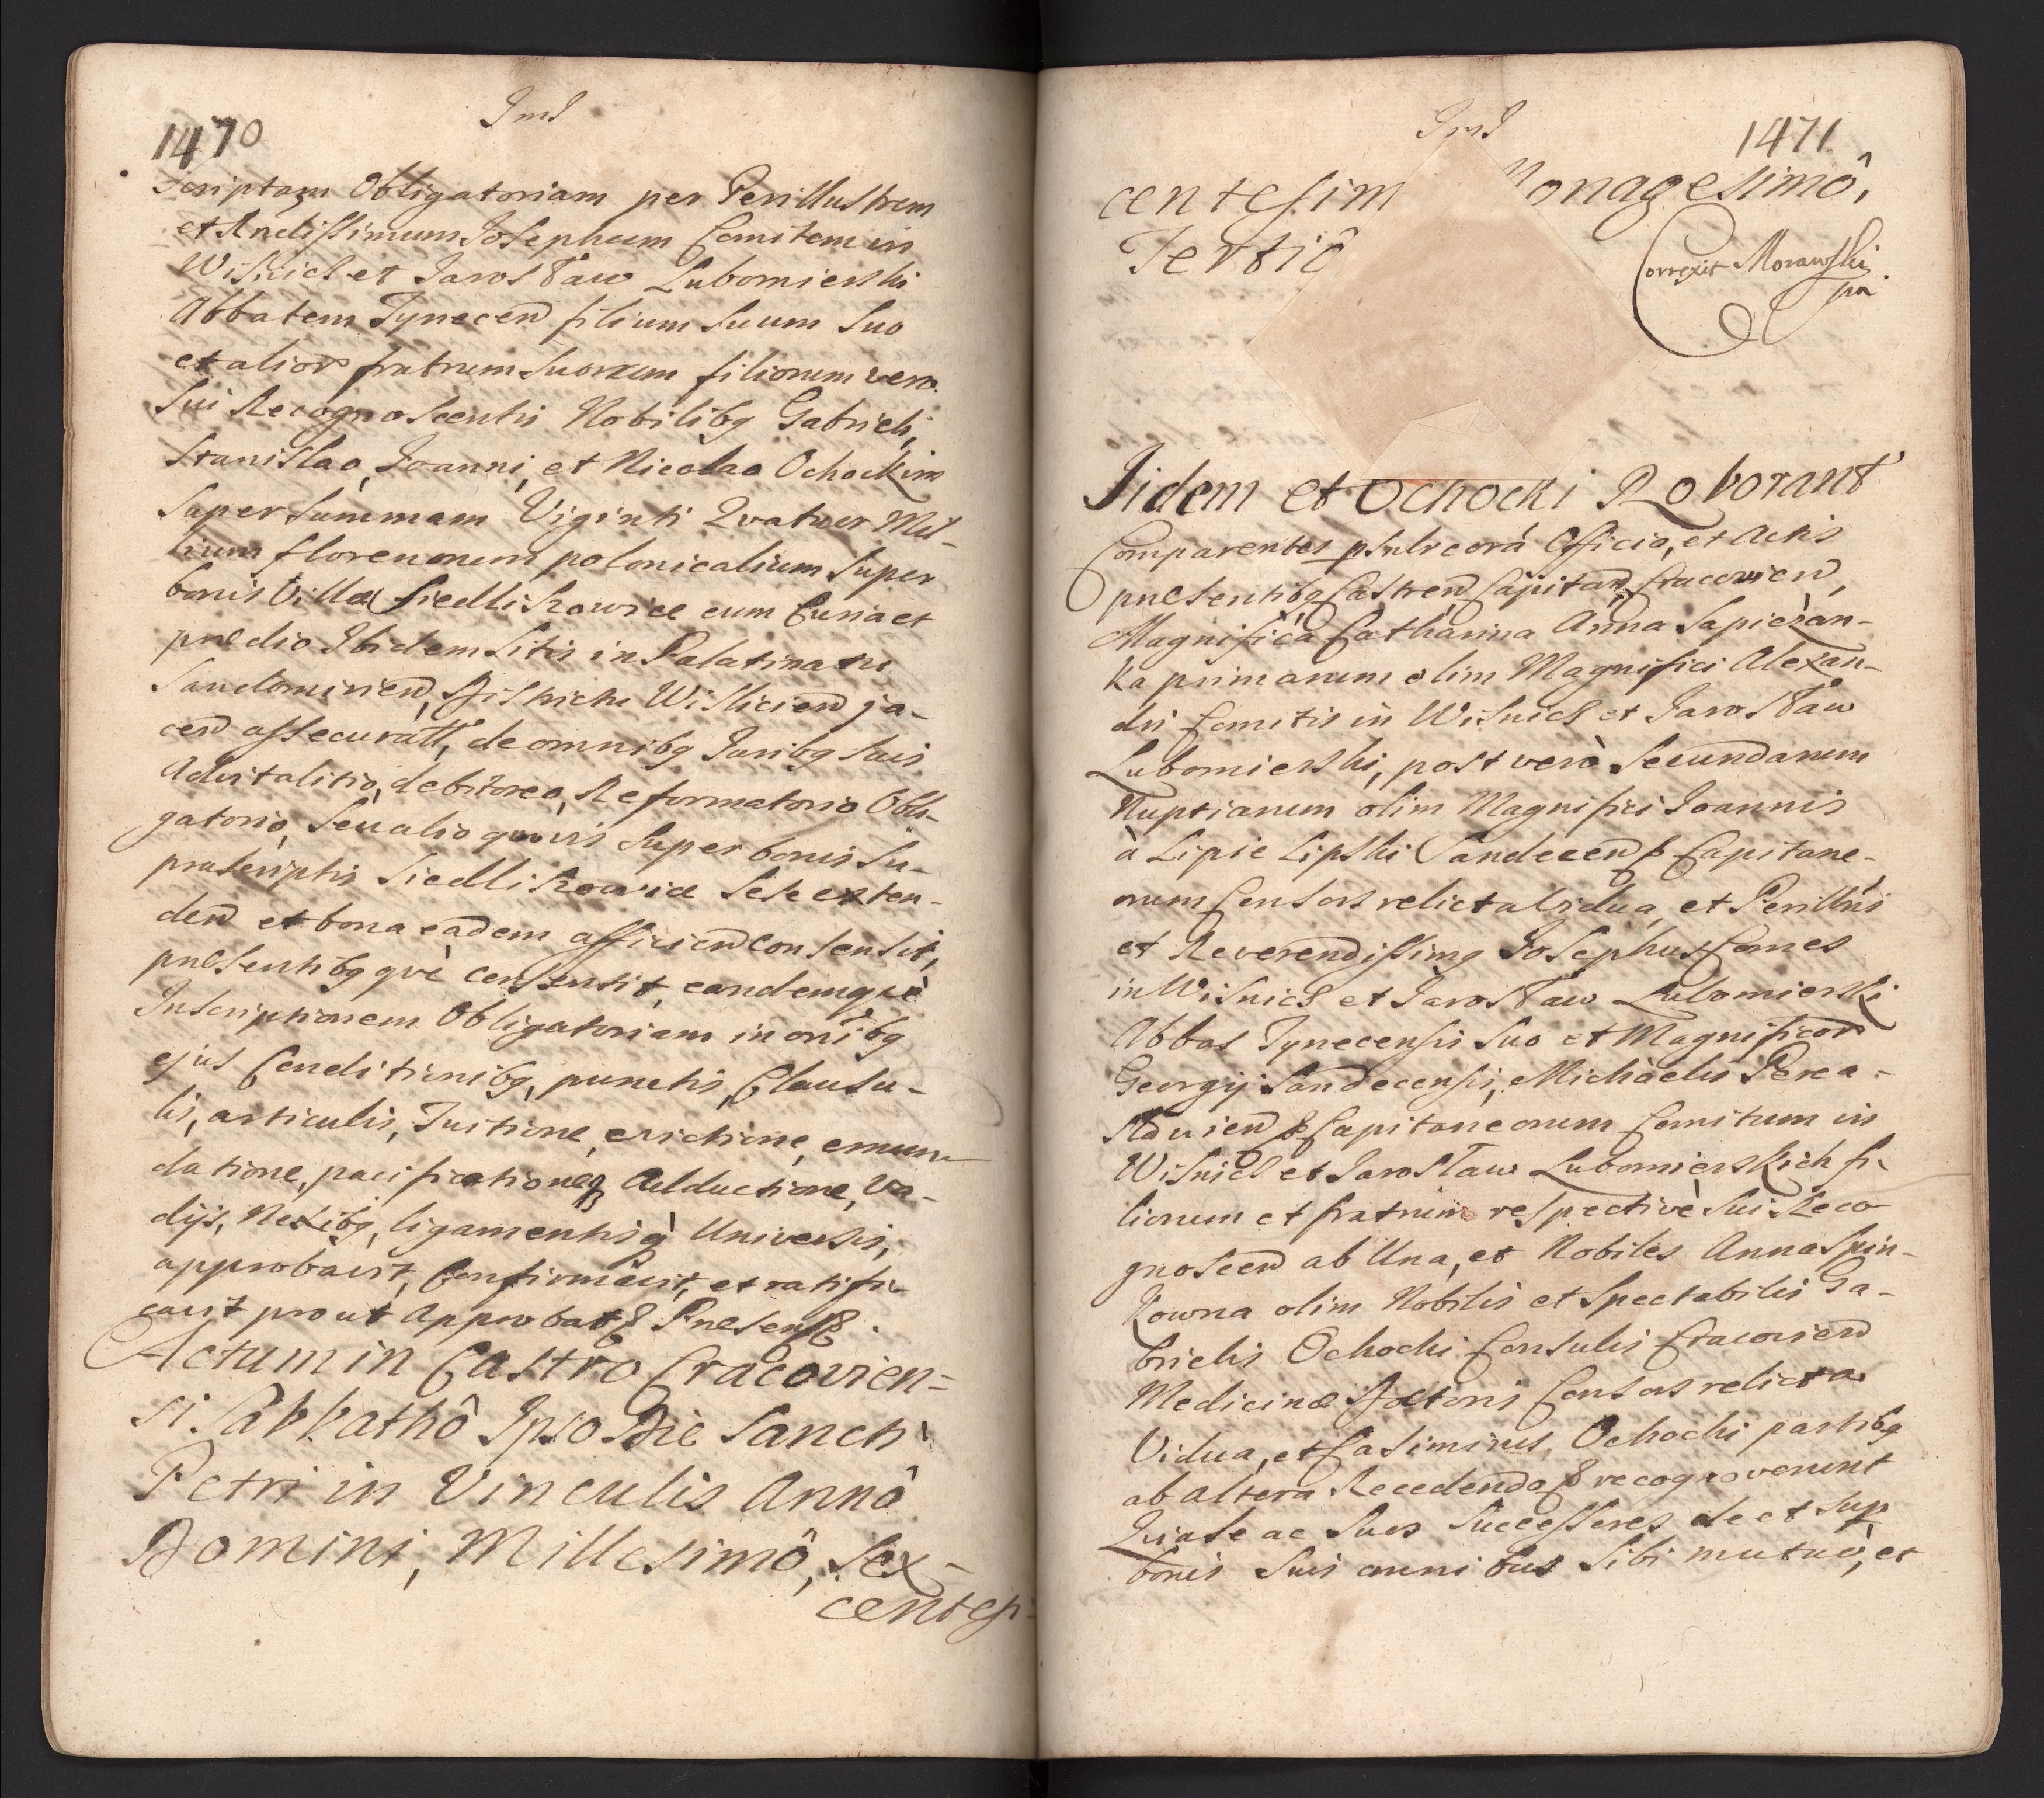 1470
Jmd
scriptam Obligatoriam per Perillustrem
et Rndissimum Josephum Comitem in
Wisnicz et Jarosław Lubomierski
Abbatem Tynecen filium suum suo
et alior fratrum suorum filiorum vero
sui Recognoscentis Nobilibq Gabrieli,
Stanislao, Joanni, et Nicolao Ochockim
super summam Viginti Quatuor Mil-
lium florenorum polonicalium super
bonis Villae Siedliszowice cum Curia et
praedio Ibidem sitis in Palatinatu
Sandomirien, Districtu Wislicien ja-
cen assecuratt, de omnibq Juribq suis
Advitalitio, debitoreo, Reformatorio Obli-
gatorio, seu alio quovis super bonis su-
prascriptis Siedliszowice sese exten-
den et bona eadem afficien consensit,
praesentibq qvè consentit, eandemqvè
Inscriptionem Obligatoriam in oñibq
ejus Conditionibq, punctis, Clausu-
lis, articulis, Tuitione, evictione, emun-
datione, pacificationeq Adductione, Va-
dijs, Nexibq, ligamentisq Universis,
approbavit, Confirmavit, et ratifi-
cavit prout Approbat & Praesent.
Actum in Castro Cracovien=
si Sabbathô Ipso Die Sancti
Petri in Vinculis Annô
Domini, Millesimô, sex-
centesi-
Jmd
1471
centesim Nonagesimô,
Tertiô
Correxit Morawski
pa
Iidem et Ochocki Roborant
Comparentes psnlr corã Officio, et Actis
praesentibq Castren Capitan Cracovien,
Magnifica Catharina Anna Sapiezan-
ka primarum olim Magnifici Alexan-
dri Comitis in Wisnicz et Jarosław
Lubomierski, post verò secundarum
Nuptiarum olim Magnifici Joannis
à Lipie Lipski Sandecen & Capitane-
orum Consors relicta Vidua, et Perillris
et Reverendissimq Josephus Comes
in Wisnicz et Jarosław Lubomierski
Abbas Tynecensis suo et Magnificor
Georgij Sandecensis, Michaelis Perea-
slavien & Capitaneorum Comitum in
Wisnicz et Jarosław Lubomierskich fi-
liorum et fratrum respectivè sui Reco-
gnoscen ab Una, et Nobiles Anna Spin-
kowna olim Nobilis et Spectabilis Ga-
brielis Ochocki Consulis Cracovien
Medicinae Doctoris Consors relicta
Vidua, et Casimirus Ochocki partibq
ab altera Recedendo & recognoverunt
Quia se ac suos successores de et sup
bonis suis omnibus sibi mutuò, et